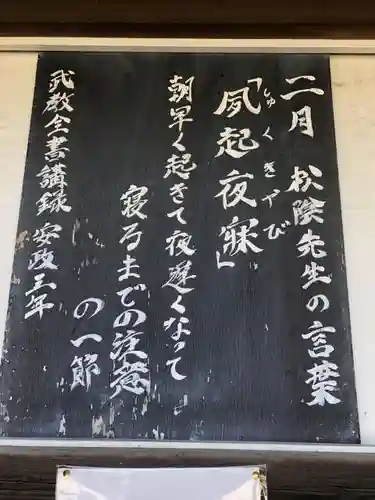 二月 松陰先生の言葉
「夙起夜寐」
しゅくきやび
朝早く起きて夜遅くなって
寝るまでの注意
の一節
武教全書講録 安政三年